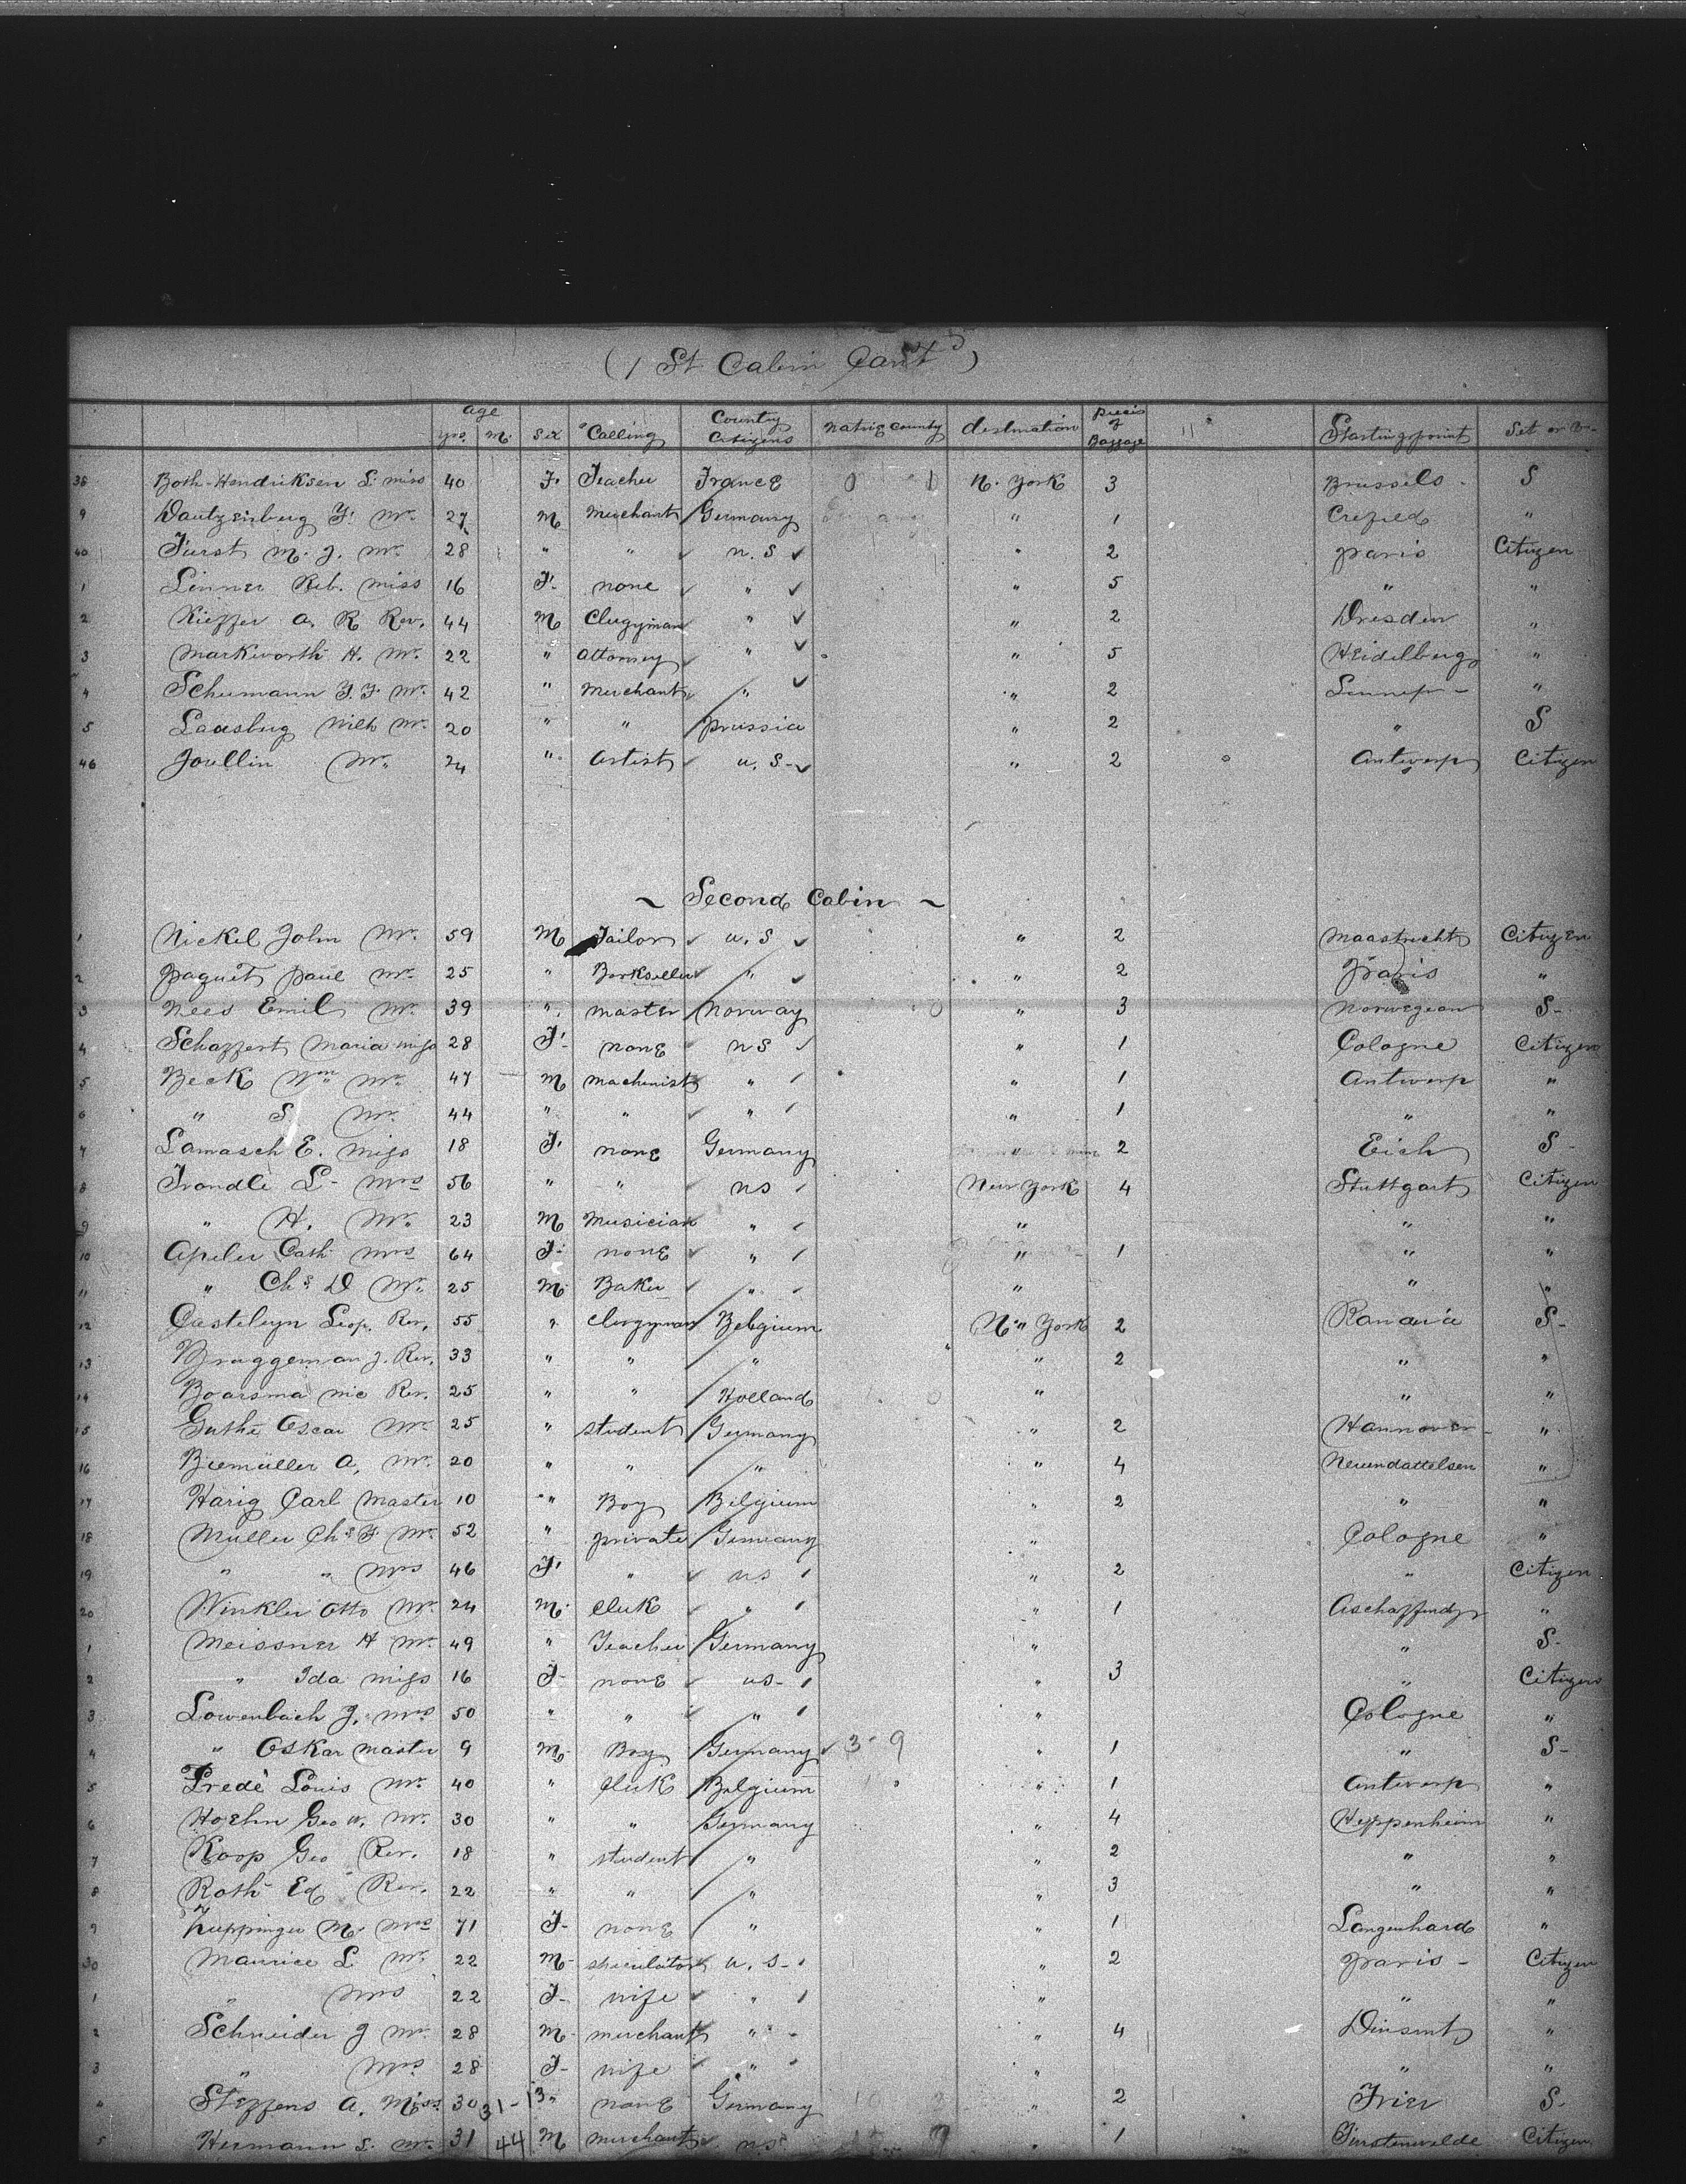 (1 St Cabin Cont'd)
age yrs. m. Sex Calling Country Citizens native county destination pieces of Baggage " Starting point Set or
38 Both-Hendriksen S. miss 40 F. Teacher France N. York 3 Brussels S
9 Dautzenberg F. Mr. 27 M Merchant Germany " 1 Crefeld "
40 Furst M. J. Mr. 28 " " U.S " 2 Paris Citizen
1 Linner Reb. Miss 16 F. none " " 5 " "
2 Kieffer A. R Rev. 44 M Clergyman " " 2 Dresden "
3 Markworth H. Mr. 22 " Attorney " " 5 Heidelberg "
4 Schumann F. F. Mr. 42 " Merchant " " 2 Lennep - "
5 Laasbug Wilh Mr. 20 " " Prussia " 2 " S
46 Joullin Mr. 24 " Artist U. S- " 2 Antwerp Citizen
~ Second Cabin ~
1 Nickel John Mr. 59 M Tailor U.S " 2 Maastricht Citizen
2 Paquet Paul Mr. 25 " Bookseller " " 2 Paris "
3 Nees Emil Mr. 39 " Master Norway " 3 Norwegean S-
4 Schaffert Maria miss 28 F. none US " 1 Cologne Citizen
5 Beck Wm Mr. 47 M machinist " " 1 Antwerp "
6 " S Mr. 44 " " " " 1 " "
7 Lamasch E. miss 18 F. none Germany " 2 Eich S-
8 Trondle L- Mrs 56 " " US New York 4 Stuttgart Citizen
9 " H. Mr. 23 M Musician " " " "
10 Apeler Cath Mrs 64 F. none " " 1 " "
11 " Chs D Mr. 25 M. Baker " " " "
12 Casteleyn Leop. Rev. 55 " Clergyman Belgium N. York 2 S-
13 Bruggeman J. Rev. 33 " " " " 2 " "
14 Boarsma Nic Rev. 25 " " Holland " " "
15 Guthe Oscar Mr. 25 " student Germany " 2 Hannover "
16 Biemüller A. Mr. 20 " " " " 4 Neuendattelsen "
17 Harig Carl Master 10 " Boy Belgium " 2 " "
18 Muller Chs F Mr. 52 " private Germany " Cologne "
19 " " Mrs 46 F. " US " 2 " Citizen
20 Winkler Otto Mr. 24 M. Clerk " " 1 "
1 Meissner H Mr. 49 " Teacher Germany " " S-
2 " Ida miss 16 F- none US- " 3 " Citizen
3 Lowenbach J. Mrs 50 " " " " Cologne "
4 " Oskar Master 9 M- Boy Germany 3-9 " 1 " S-
5 Predè Louis Mr. 40 " Clerk Belgium " 1 Antwerp "
6 Hoehn Geo W. Mr. 30 " " Germany " 4 Heppenheim "
7 Koop Geo Rev. 18 " student " " 2 " "
8 Roth Ed Rev. 22 " " " " 3 " "
9 Zuppinger M. Mrs 71 F- none " " 1 Langenhard "
30 Maurice L Mr. 22 M- speculator U. S- " 2 Paris - Citizen
1 " Mrs 22 F- wife " " " "
2 Schneider J Mr. 28 M- merchant " " 4 "
3 " Mrs 28 F- wife " " " "
4 Steffens A. Miss 30 31-13 " none Germany " 2 Trier S-
5 Hermann S. Mr. 31 44 M merchant US " 1 Fürstenwalde Citizen